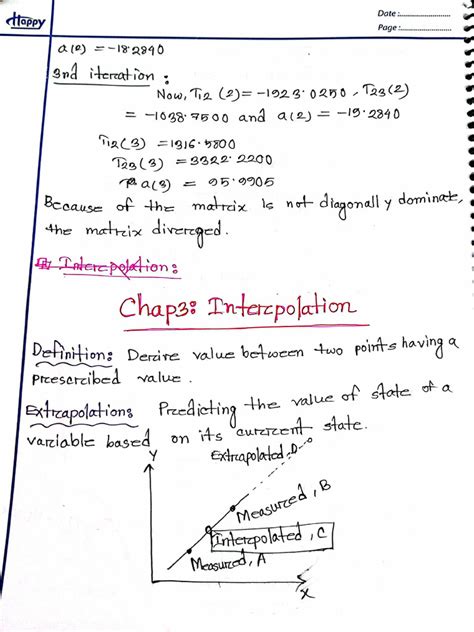 Happy
Date :
Page :
a(2) = -18.2840
3nd itercation :
Now, T12 (2) = -1923.0250, T23(2)
= -1038.7500 and a(2) = -19.2840
T12(3) = 1316.5800
T23(3) = 3322.2200
a(3) = 95.9905
Because of the matrix is not diagonally dominate,
the matrix diverged.
Interpolation:
Chap3: Interpolation
Definition: Derive value between two points having a
prescribed value.
Extrapolation: Predicting the value of state of a
variable based on its current state.
Y
Extrapolated, D
Measured, B
Interpolated, C
Measured, A
X